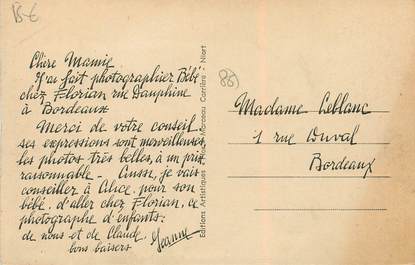 15€
Chère Mamie
J'ai fait photographier Bébé
chez Florian rue Dauphine
à Bordeaux
Merci de votre conseil
ses expressions sont merveilleuses
les photos très belles, à un prix
raisonnable - Aussi, je vais
conseiller à Alice pour son
bébé, d'aller chez Florian, ce
photographe d'enfants.
de nous et de Claude.
bons baisers
Jeanne
Editions Artistiques Marceau Carrière - Niort
Madame Leblanc
1 rue Duval
Bordeaux